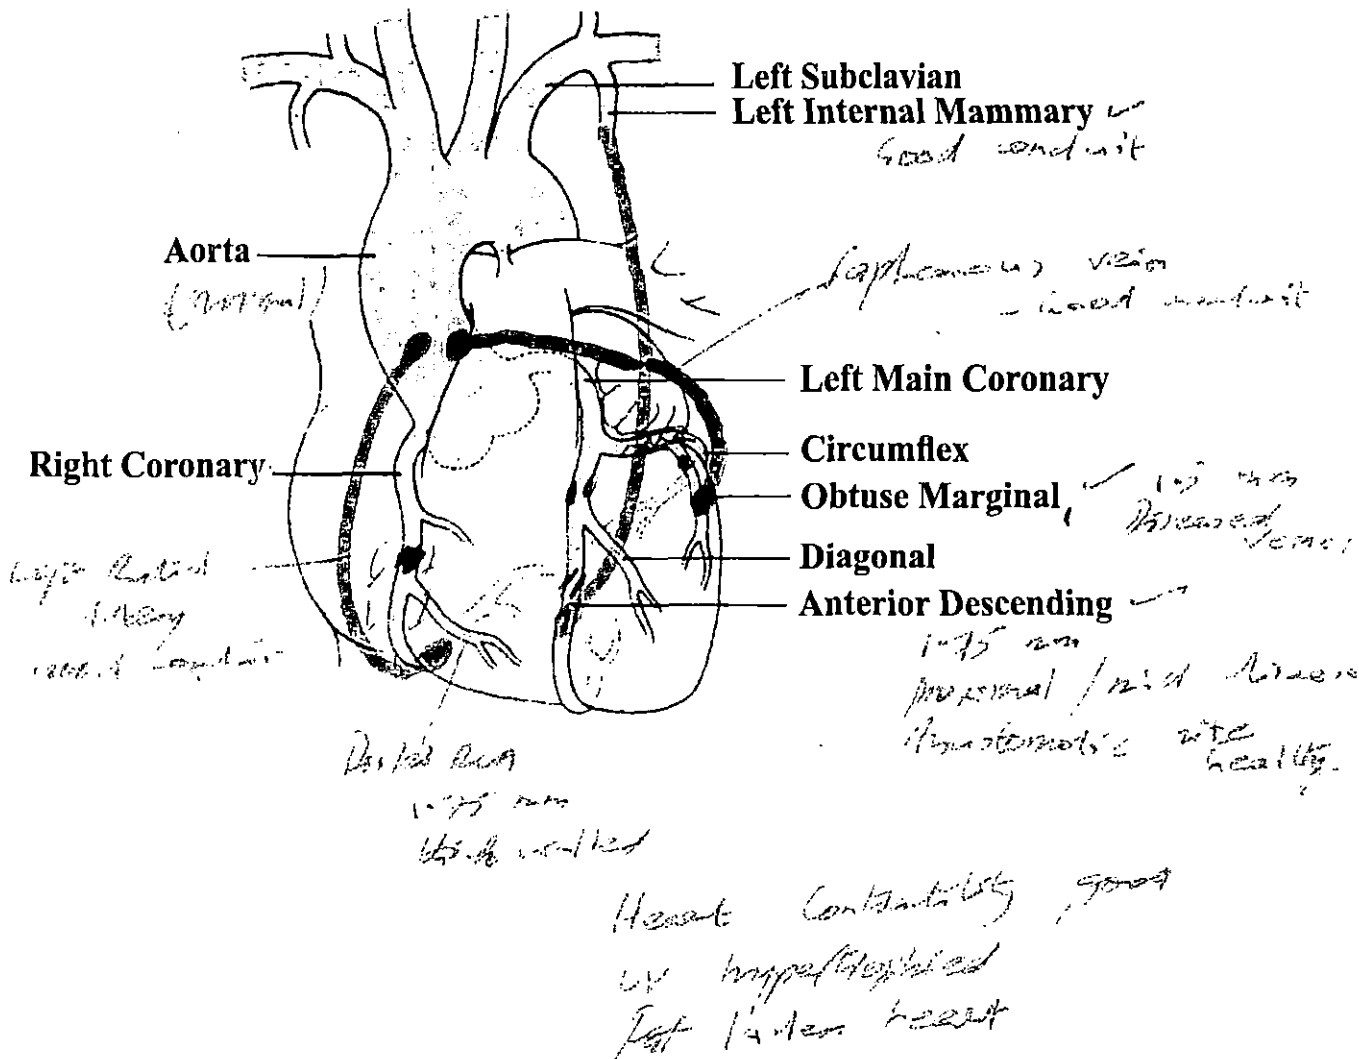 Left Subclavian
Left Internal Mammary ✓
Good conduit
Aorta
(normal)
Saphenous vein
- Good conduit
Left Main Coronary
Circumflex
Right Coronary
Obtuse Marginal ✓ 1.5 mm
Diseased
vessel
Diagonal
Anterior Descending ✓
1.75 mm
Proximal / mid disease
Anastomotic site
healthy.
Left Radial
Artery
Good conduit
Distal RCA
1.75 mm
thick walled
Heart Contractility good
LV hypertrophied
Fat laden heart